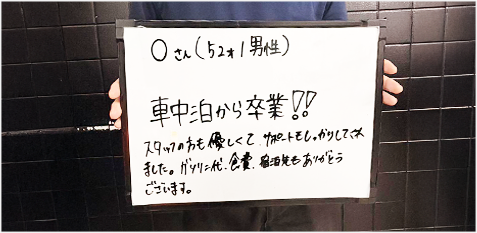 ○さん(52才/男性)
車中泊から卒業!!
スタッフの方も優しくて、サポートもしっかりしてくれ
ました。ガソリン代、食費、宿泊先もありがとう
ございます。